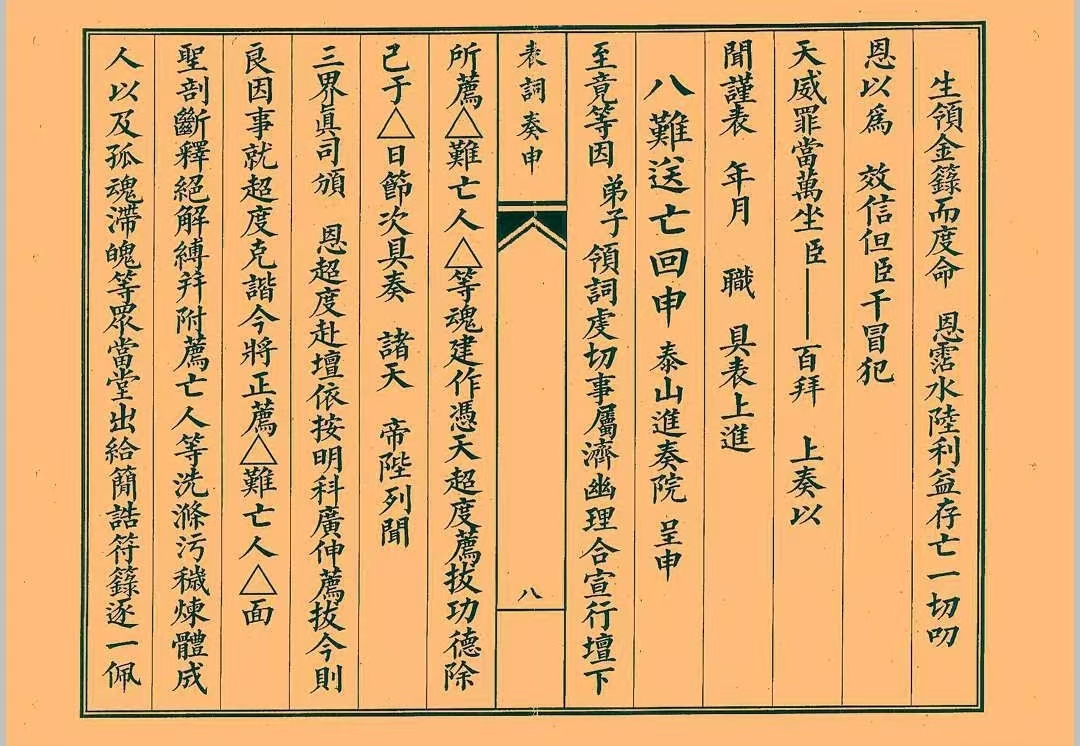 生領金籙而度命　恩霑水陸利益存亡一切叨
恩以爲　效信但臣干冒犯
天威罪當萬坐臣——百拜　上奏以
聞謹表　年月　職　具表上進
八難送亡回申　泰山進奏院　呈申
至竟等因　弟子領詞虔切事屬濟幽理合宣行壇下
表詞奏申
八
所薦△難亡人△等魂建作憑天超度薦拔功德除
已于△日節次具奏　諸天　帝陛列聞
三界眞司頒　恩超度赴壇依按明科廣伸薦拔今則
良因事就超度克諧今將正薦△難亡人△面
聖剖斷釋絕解縛幷附薦亡人等洗滌污穢煉體成
人以及孤魂滯魄等眾當堂出給簡誥符籙逐一佩